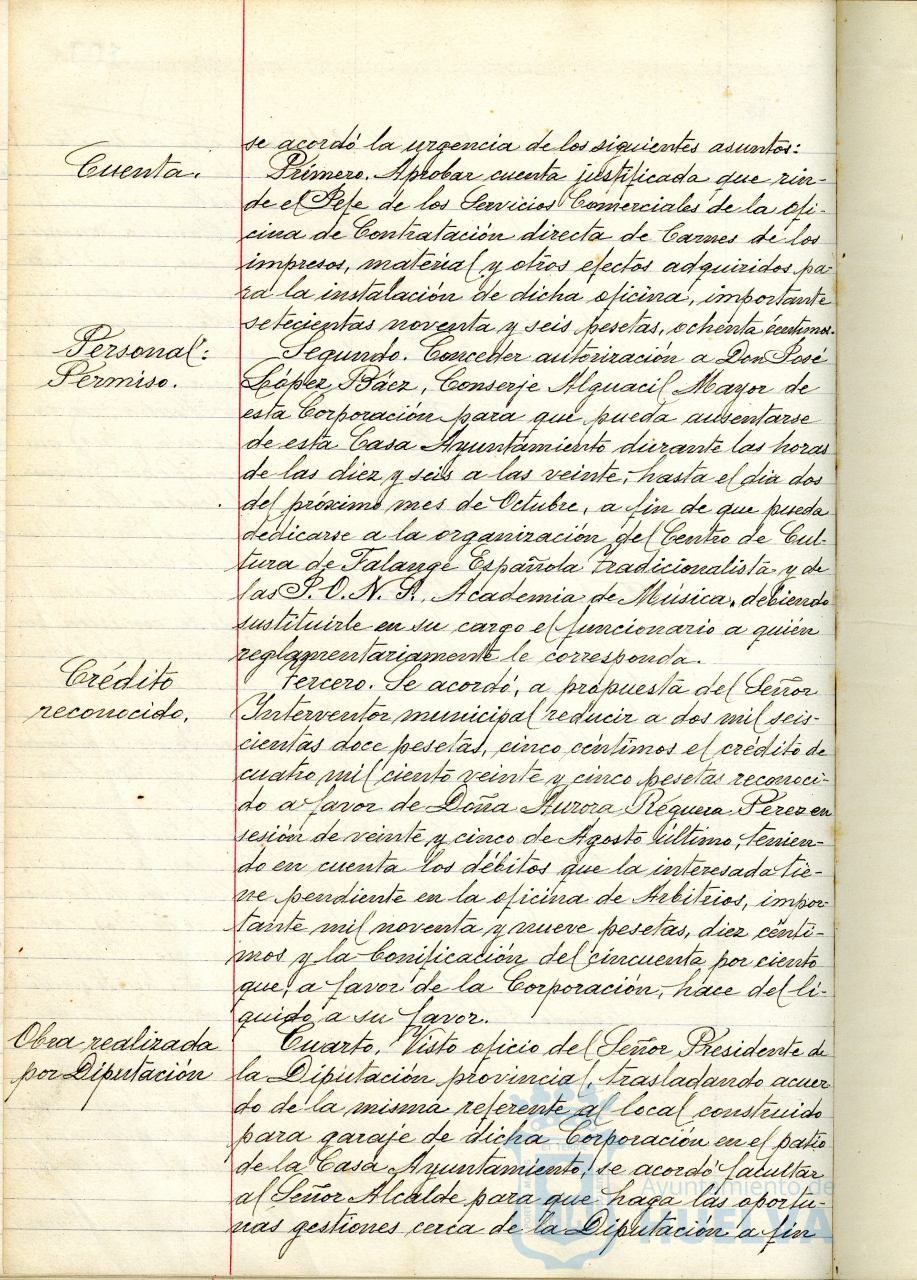 se acordó la urgencia de los siguientes asuntos:
Cuenta.
Primero. Aprobar cuenta justificada que rin-
de el Jefe de los Servicios Comerciales de la ofi-
cina de Contratación directa de Carnes de los
impresos, material y otros efectos adquiridos pa-
ra la instalación de dicha oficina, importante
setecientas noventa y seis pesetas, ochenta céntimos.
Personal:
Permiso.
Segundo. Conceder autorización a Don José
López Báez, Conserje Alguacil Mayor de
esta Corporación para que pueda ausentarse
de esta Casa Ayuntamiento durante las horas
de las diez y seis a las veinte, hasta el dia dos
del próximo mes de Octubre, a fin de que pueda
dedicarse a la organización del Centro de Cul-
tura de Falange Española Tradicionalista y de
las J.O.N.S., Academia de Música, debiendo
sustituirle en su cargo el funcionario a quién
reglamentariamente le corresponda.
Crédito
reconocido.
Tercero. Se acordó, a propuesta del Señor
Interventor municipal reducir a dos mil seis-
cientas doce pesetas, cinco céntimos el crédito de
cuatro mil ciento veinte y cinco pesetas reconoci-
do a favor de Doña Aurora Reguera Perez en
sesión de veinte y cinco de Agosto último, tenien-
do en cuenta los débitos que la interesada tie-
ne pendiente en la oficina de Arbitrios, impor-
tante mil noventa y nueve pesetas, diez cénti-
mos y la bonificación del cincuenta por ciento
que, a favor de la Corporación, hace del lí-
quido a su favor.
Obra realizada
por Diputación
Cuarto. Visto oficio del Señor Presidente de
la Diputación provincial, trasladando acuer-
do de la misma referente al local construido
para garaje de dicha Corporación en el patio
de la Casa Ayuntamiento, se acordó facultar
al Señor Alcalde para que haga las oportu-
nas gestiones cerca de la Diputación a fin
Ayuntamiento de
HUELVA